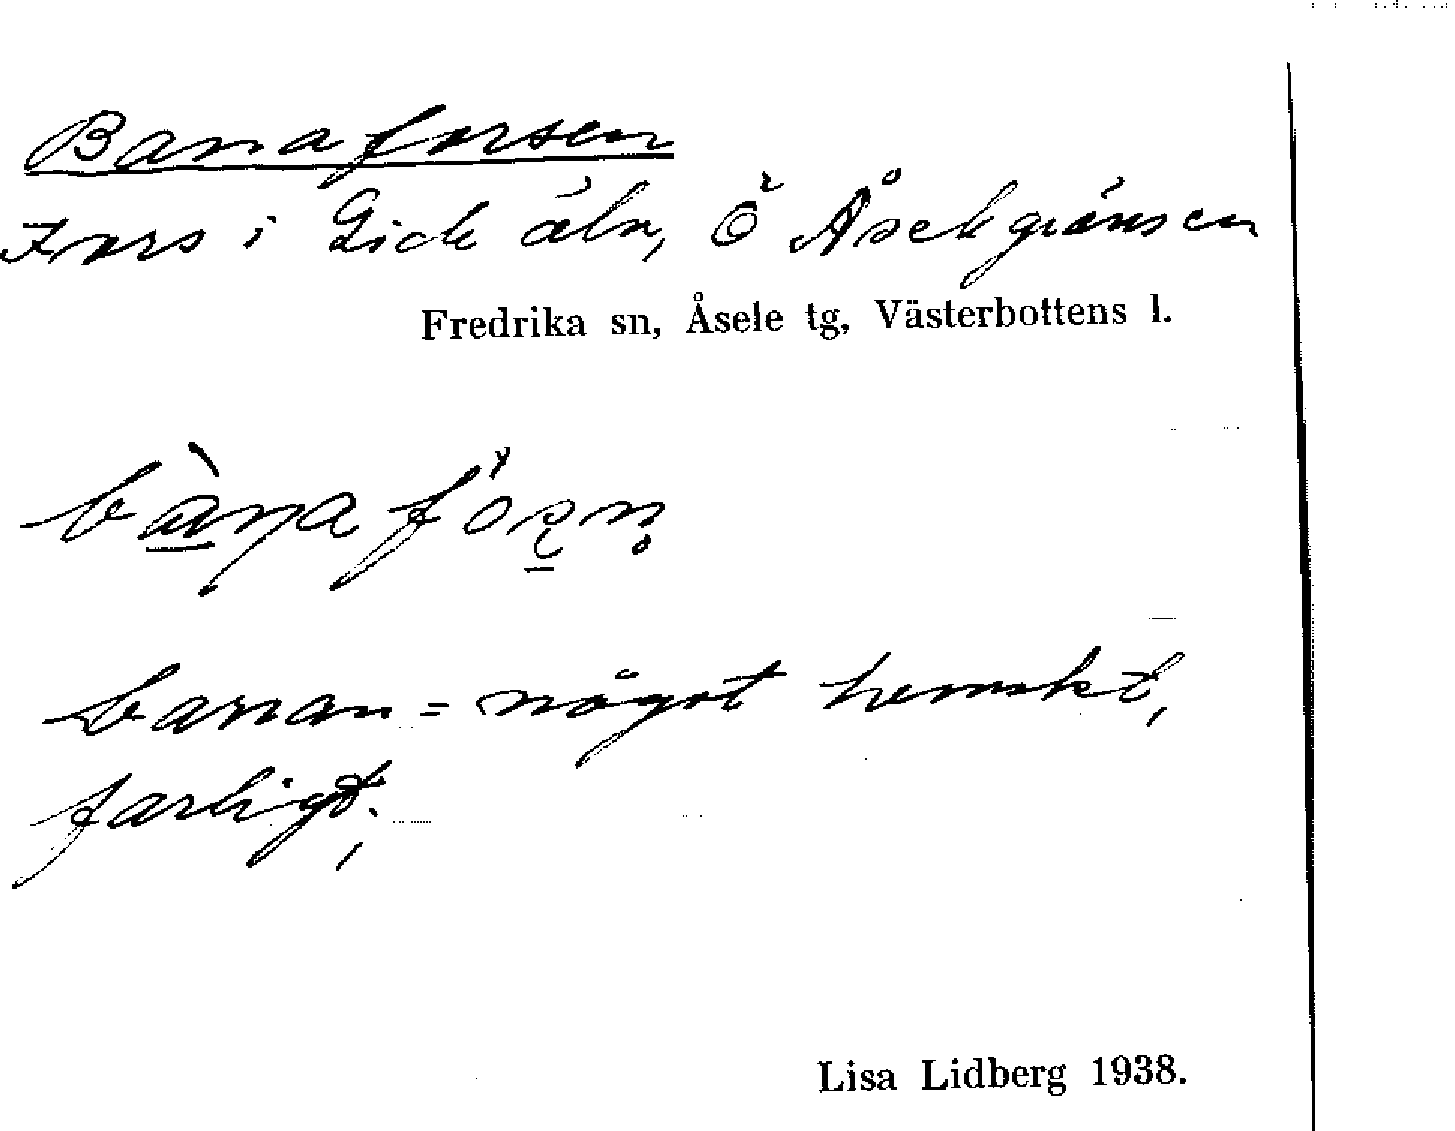 Banaforsen
Fors i Gideälv, Ö Åselegränsen
Fredrika sn, Åsele tg, Västerbottens l.
banan = något hemskt,
farligt,
Lisa Lidberg 1938.